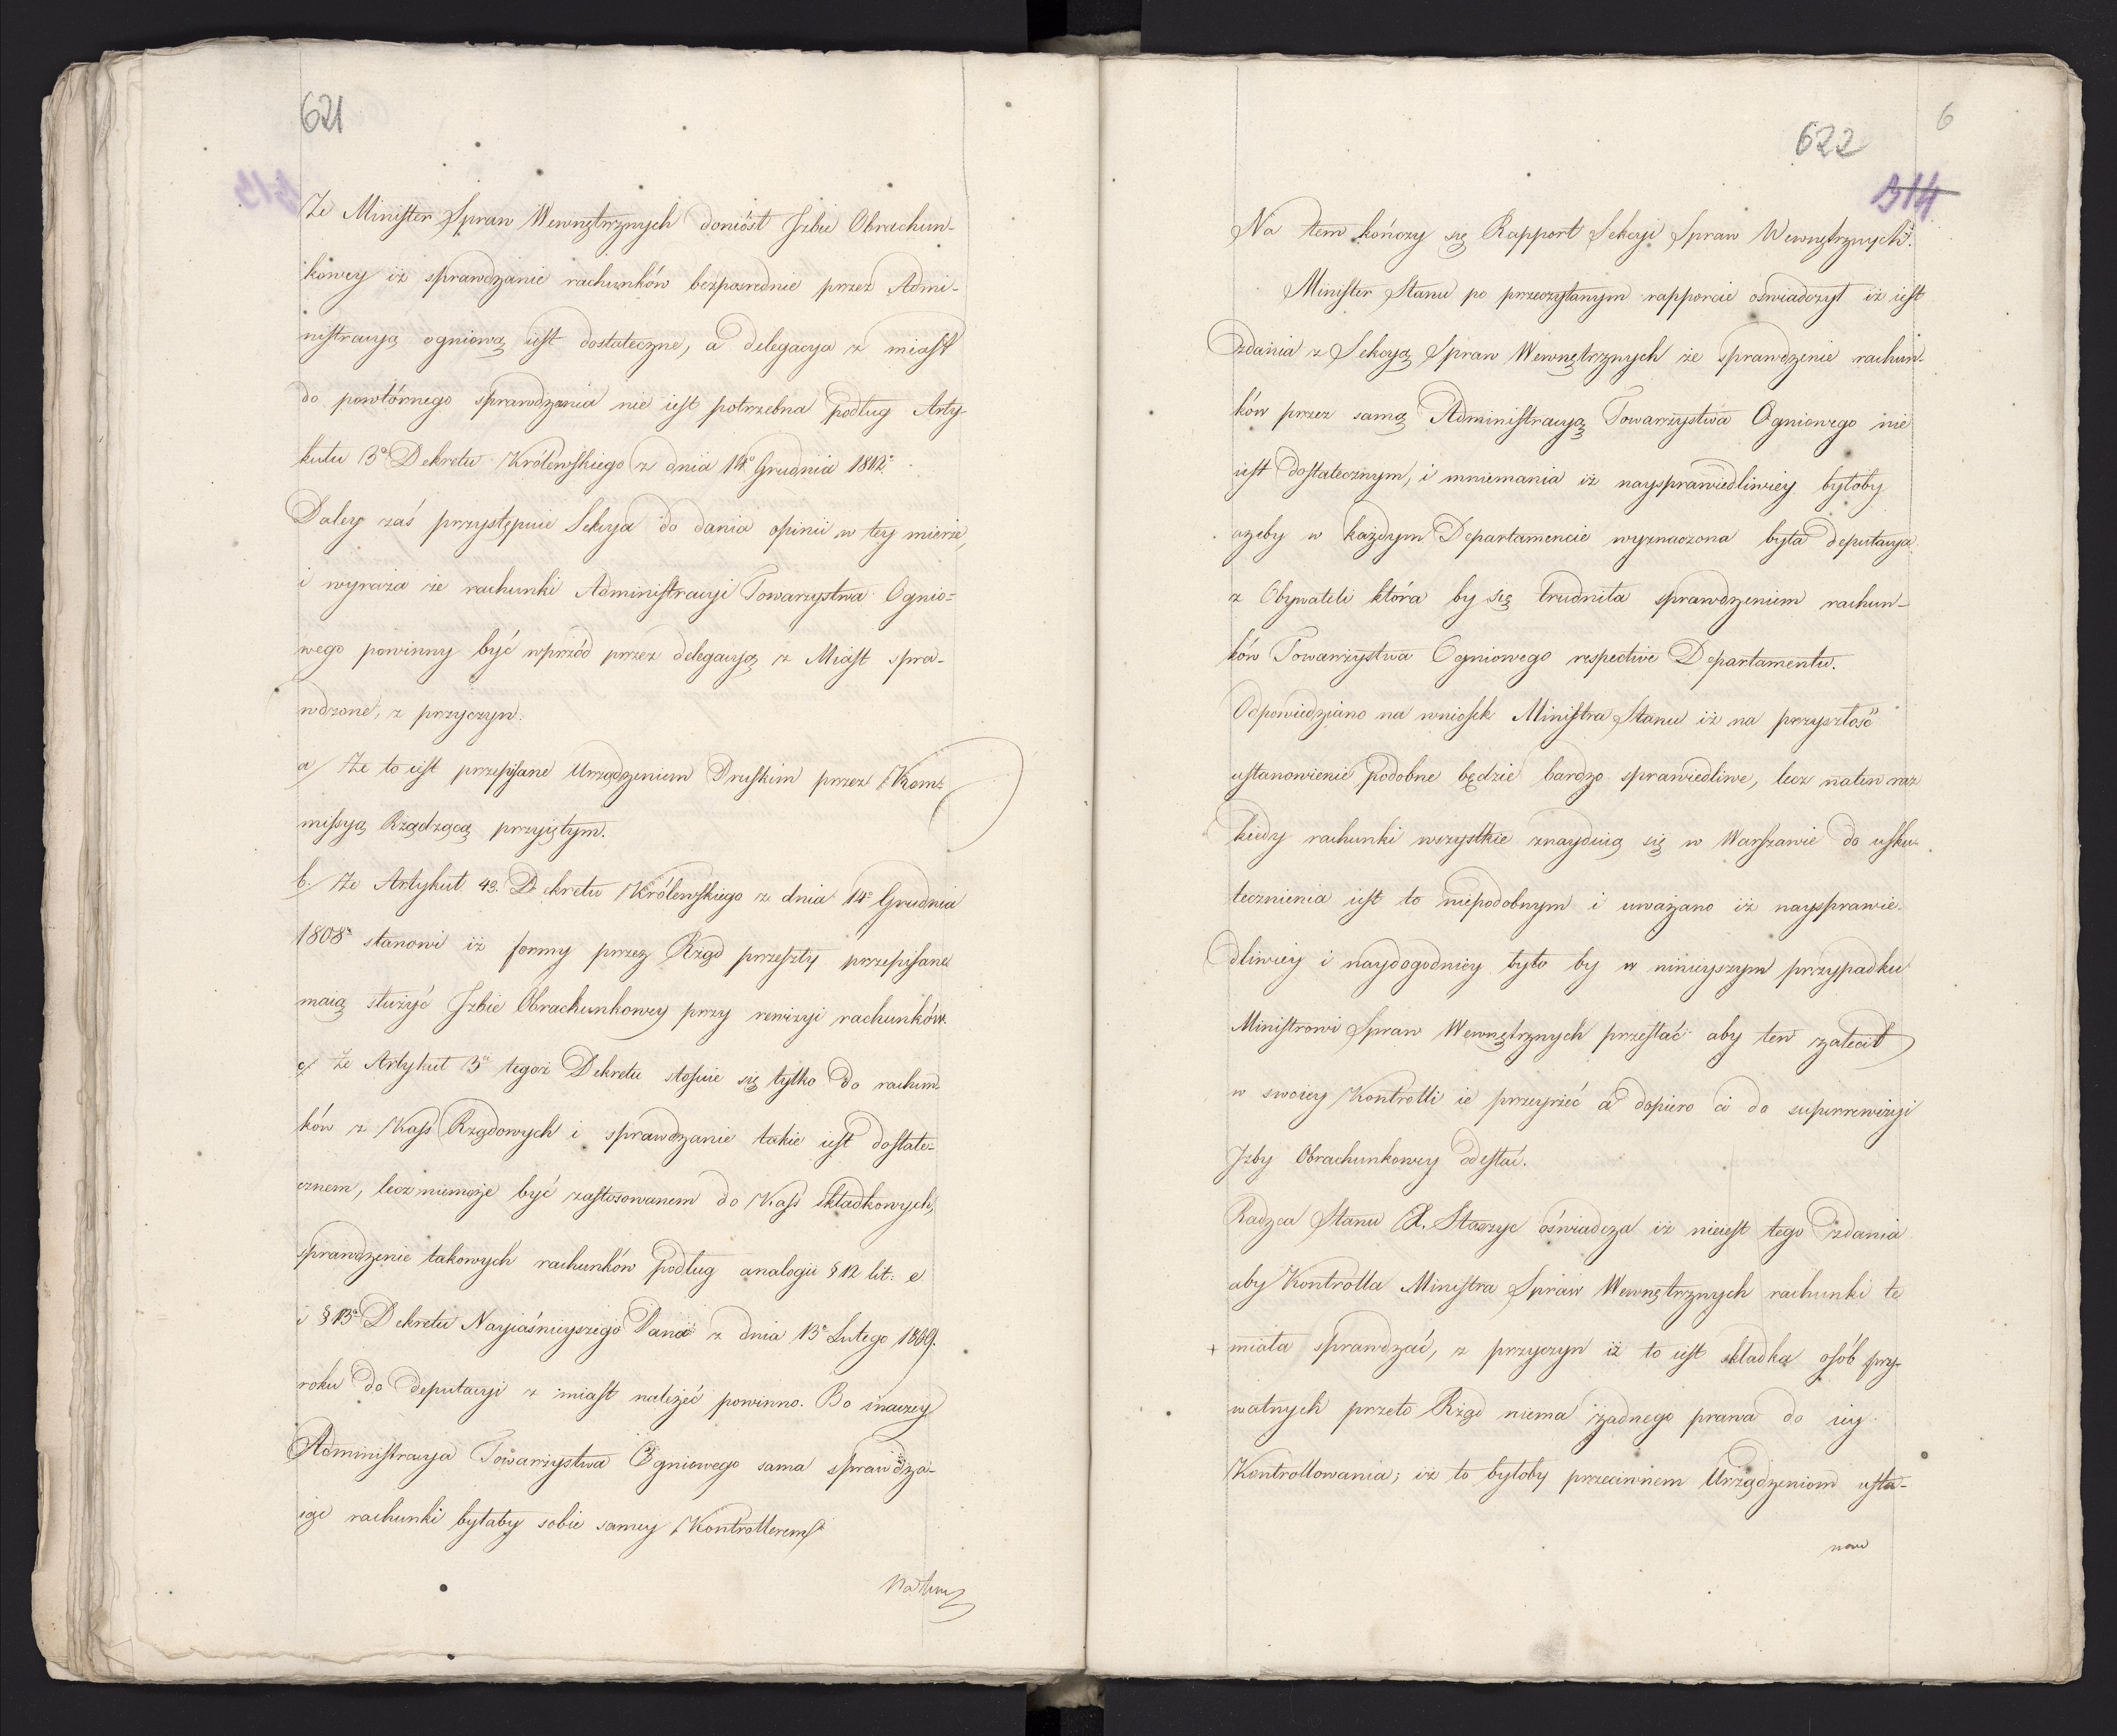 621
Ze Minister Spraw Wewnętrznych doniósł Jzbie Obrachun-
kowey iż sprawdzanie rachunków bezposrednie przez Admi-
nistracyą ogniową iest dostateczne, a delegacya z miast
do powtórnego sprawdzania nie iest potrzebna podług Arty-
kułu 13º Dekretu Królewskiego z dnia 14º Grudnia 1812º
Daley zaś przystępuie Sekcya do dania opinii w tey mierze,
i wyraża że rachunki Administracyi Towarzystwa Ognio=
wego powinny być wprzód przez delegacyą z Miast spra-
wdzone, z przyczyn:
a/ Że to iest przepisane Urządzeniem Pruskim przez Kom=
missyą Rządzącą przyiętym.
b./ Że Artykuł 43. Dekretu Królewskiego z dnia 14º Grudnia
1808º stanowi iż formy przez Rząd przeszły przepisane
maią służyć Jzbie Obrachunkowey przy rewizyi rachunków.
c/ że Artykuł 13º tegoż Dekretu stosuie się tylko do rachun-
ków z Kass Rządowych i sprawdzanie takie iest dostate-
cznem, lecz niemoże być zastosowanem do Kass składkowych,
sprawdzenie takowych rachunków podług analogii § 12 lit: e
i § 13º Dekretu Nayiaśnieyszego Pana z dnia 13º Lutego 1809.
roku do deputacyi z miast należeć powinno. Bo inaczey
Administracya Towarzystwa Ogniowego sama sprawdza-
iąc rachunki byłaby sobie samey Kontrollerem
Na tem
6
622
314
Na tem kończy się Rapport Sekcyi Spraw Wewnętrznych.
Minister Stanu po przeczytanym rapporcie oświadczył iż iest
zdania z Sekcyą Spraw Wewnętrznych że sprawdzenie rachun-
ków przez samą Administracyą Towarzystwa Ogniowego nie
iest dostatecznym, i mniemania iż naysprawiedliwiey byłoby
ażeby w każdym Departamencie wyznaczona była deputacya
z Obywateli która by się trudniła sprawdzeniem rachun-
ków Towarzystwa Ogniowego respective Departamentu.
Odpowiedziano na wniosek Ministra Stanu iż na przyszłość
ustanowienie podobne będzie bardzo sprawiedliwe, lecz naten raz
kiedy rachunki wszystkie znayduią się w Warszawie do usku-
tecznienia iest to niepodobnym i uważano iż naysprawie-
dliwiey i naydogodniey było by w ninieyszym przypadku
Ministrowi Spraw Wewnętrznych przesłać aby ten zalecił
w swoiey Kontrolli ie przeyrzeć a dopiero ci do superrewizyi
Jzby Obrachunkowey odesłać.
Radzca Stanu X. Staszyc oświadcza iż nieiest tego zdania
aby Kontrolla Ministra Spraw Wewnętrznych rachunki te
+ miała sprawdzać, z przyczyn iż to iest składka osób pry-
watnych przeto Rząd niema żadnego prawa do iey
Kontrollowania; iż to byłoby przeciwnem Urządzeniom usta-
now